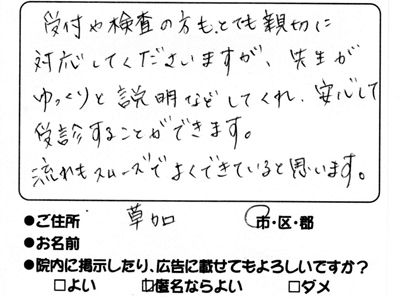 受付や検査の方も、とても親切に
対応してくださいますが、先生が
ゆっくりと説明などしてくれ、安心して
受診することができます。
流れもスムーズでよくできていると思います。
●ご住所 草加 市・区・郡
●お名前
●院内に掲示したり、広告に載せてもよろしいですか?
□よい □匿名ならよい □ダメ